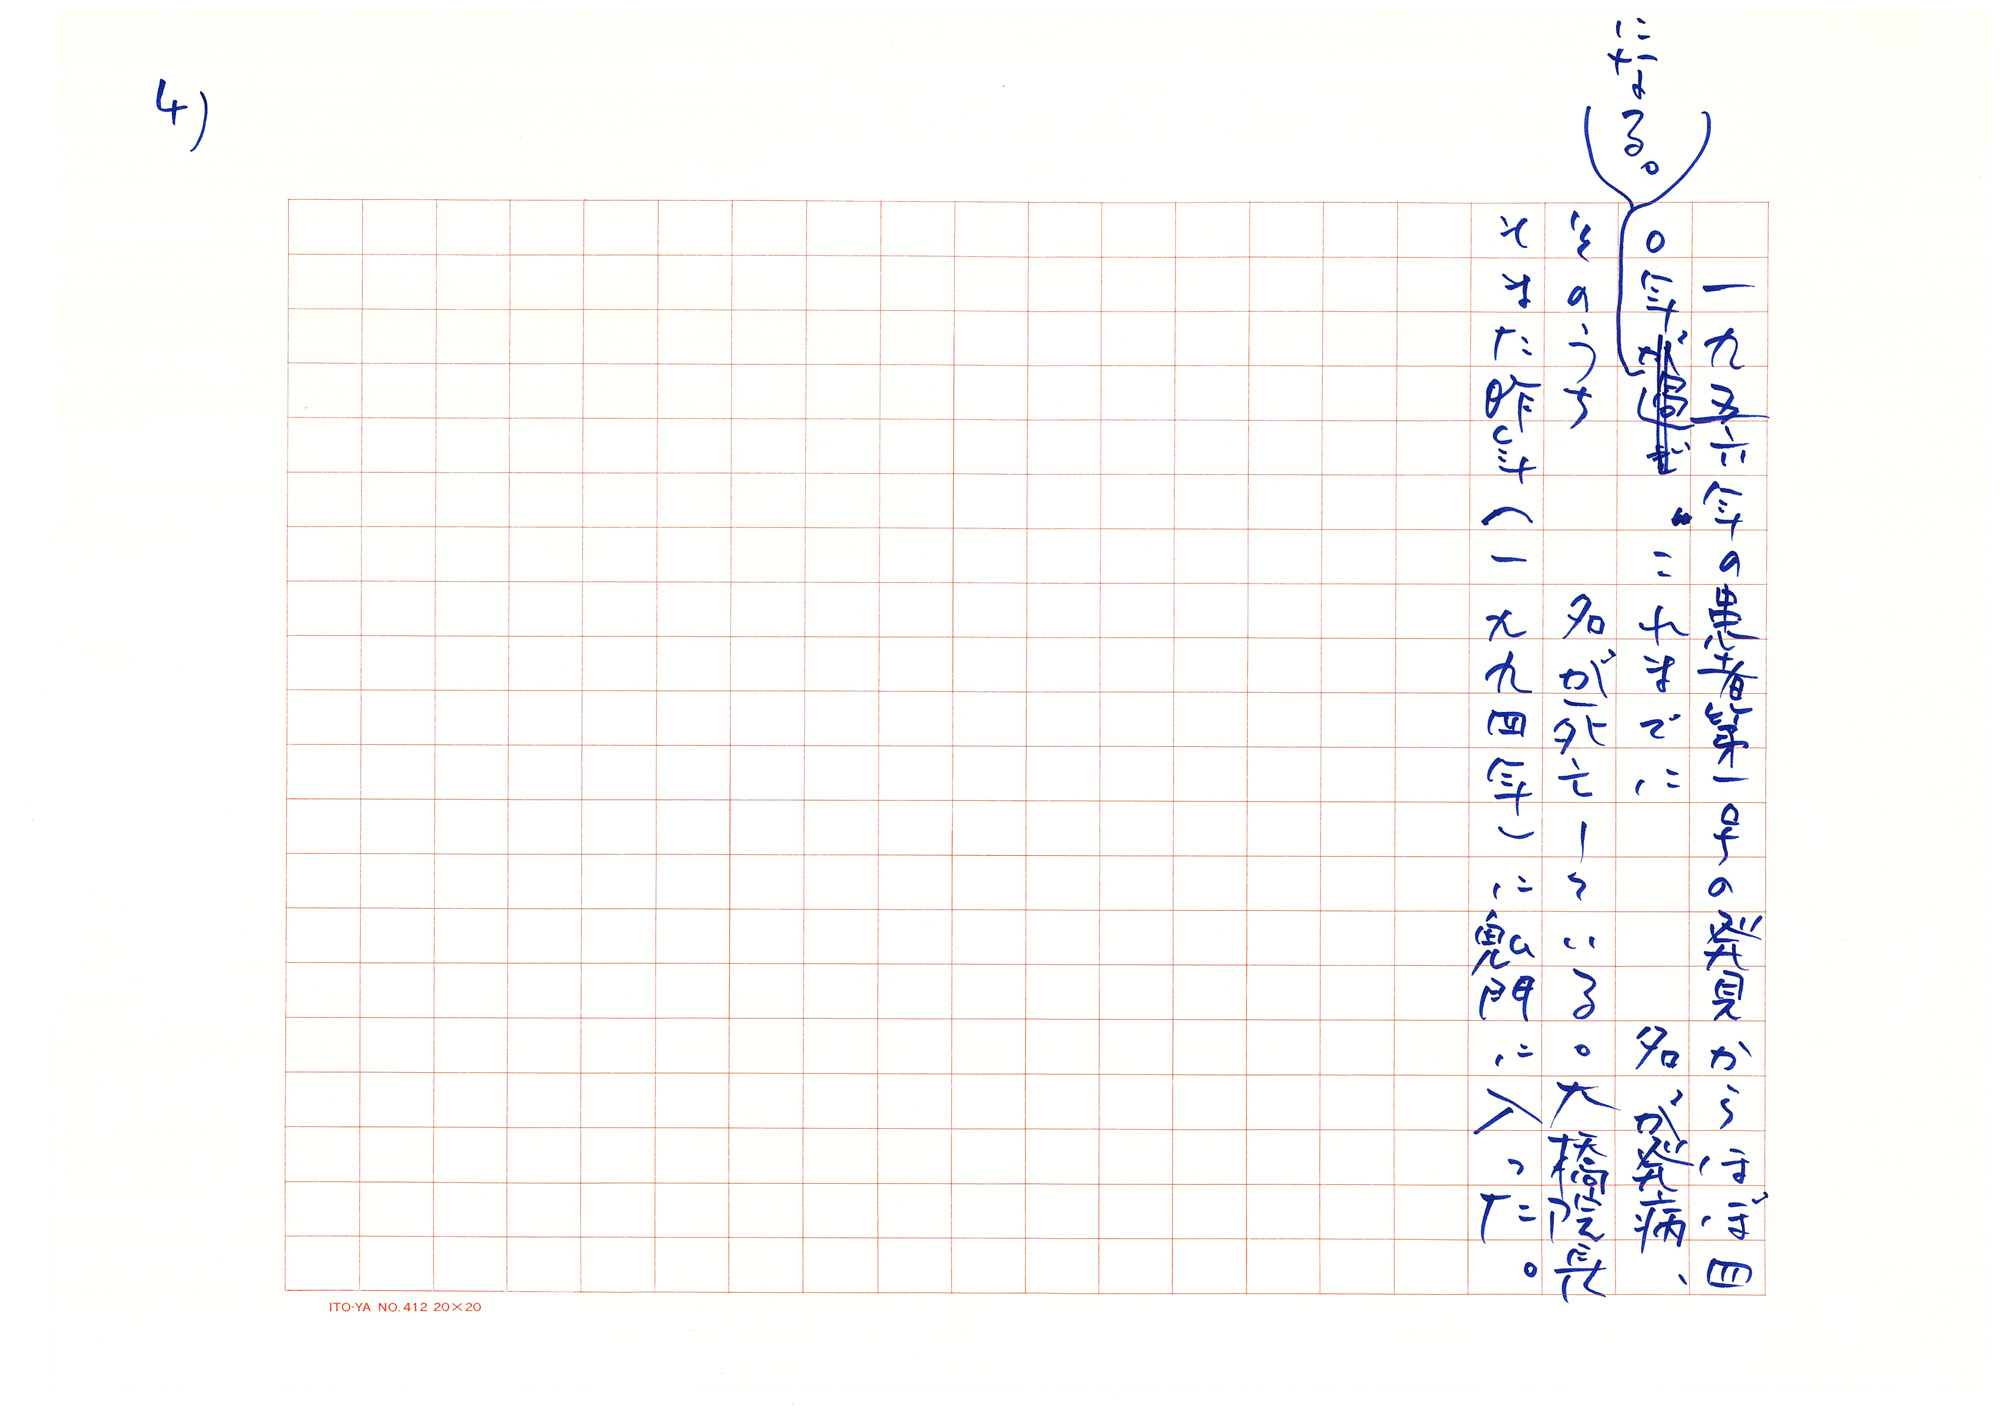 4)
一九五六年の患者第一号の発見からほぼ四
〇年が過ぎ
になる。
これまでに　　　　名が発病、
そのうち　　　名が死亡している。大橋院長
もまた昨年(一九九四年)に鬼門に入った。
ITO-YA NO.412 20×20